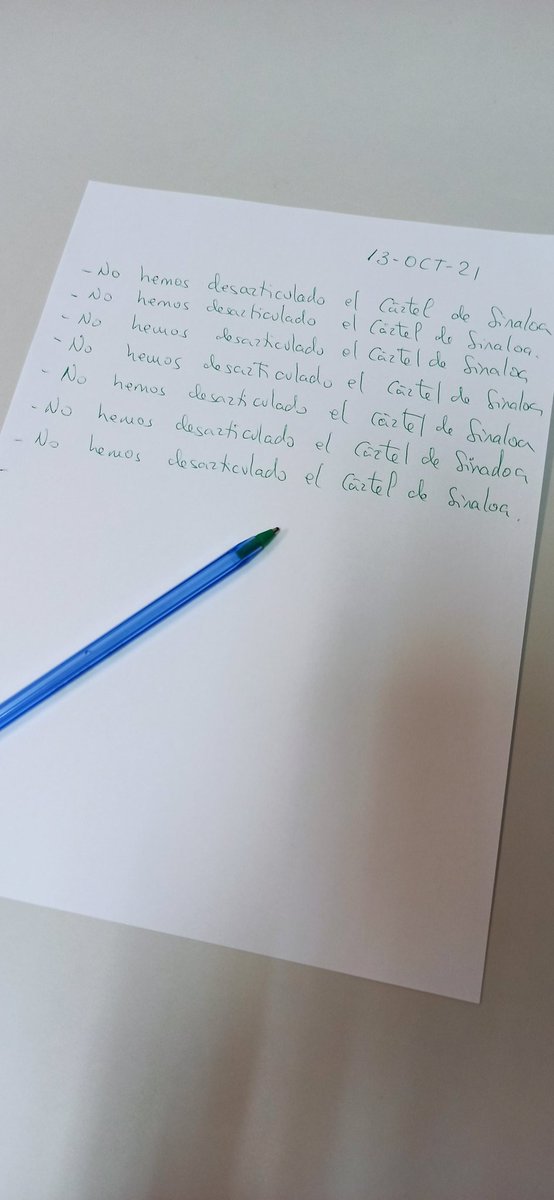 13-OCT-21
- No hemos desarticulado el Cártel de Sinaloa
- No hemos desarticulado el Cártel de Sinaloa.
- No hemos desarticulado el Cártel de Sinaloa
- No hemos desarticulado el Cártel de Sinaloa
- No hemos desarticulado el Cártel de Sinaloa
- No hemos desarticulado el Cártel de Sinadoa
- No hemos desarticulado el Cártel de Sinaloa.
-